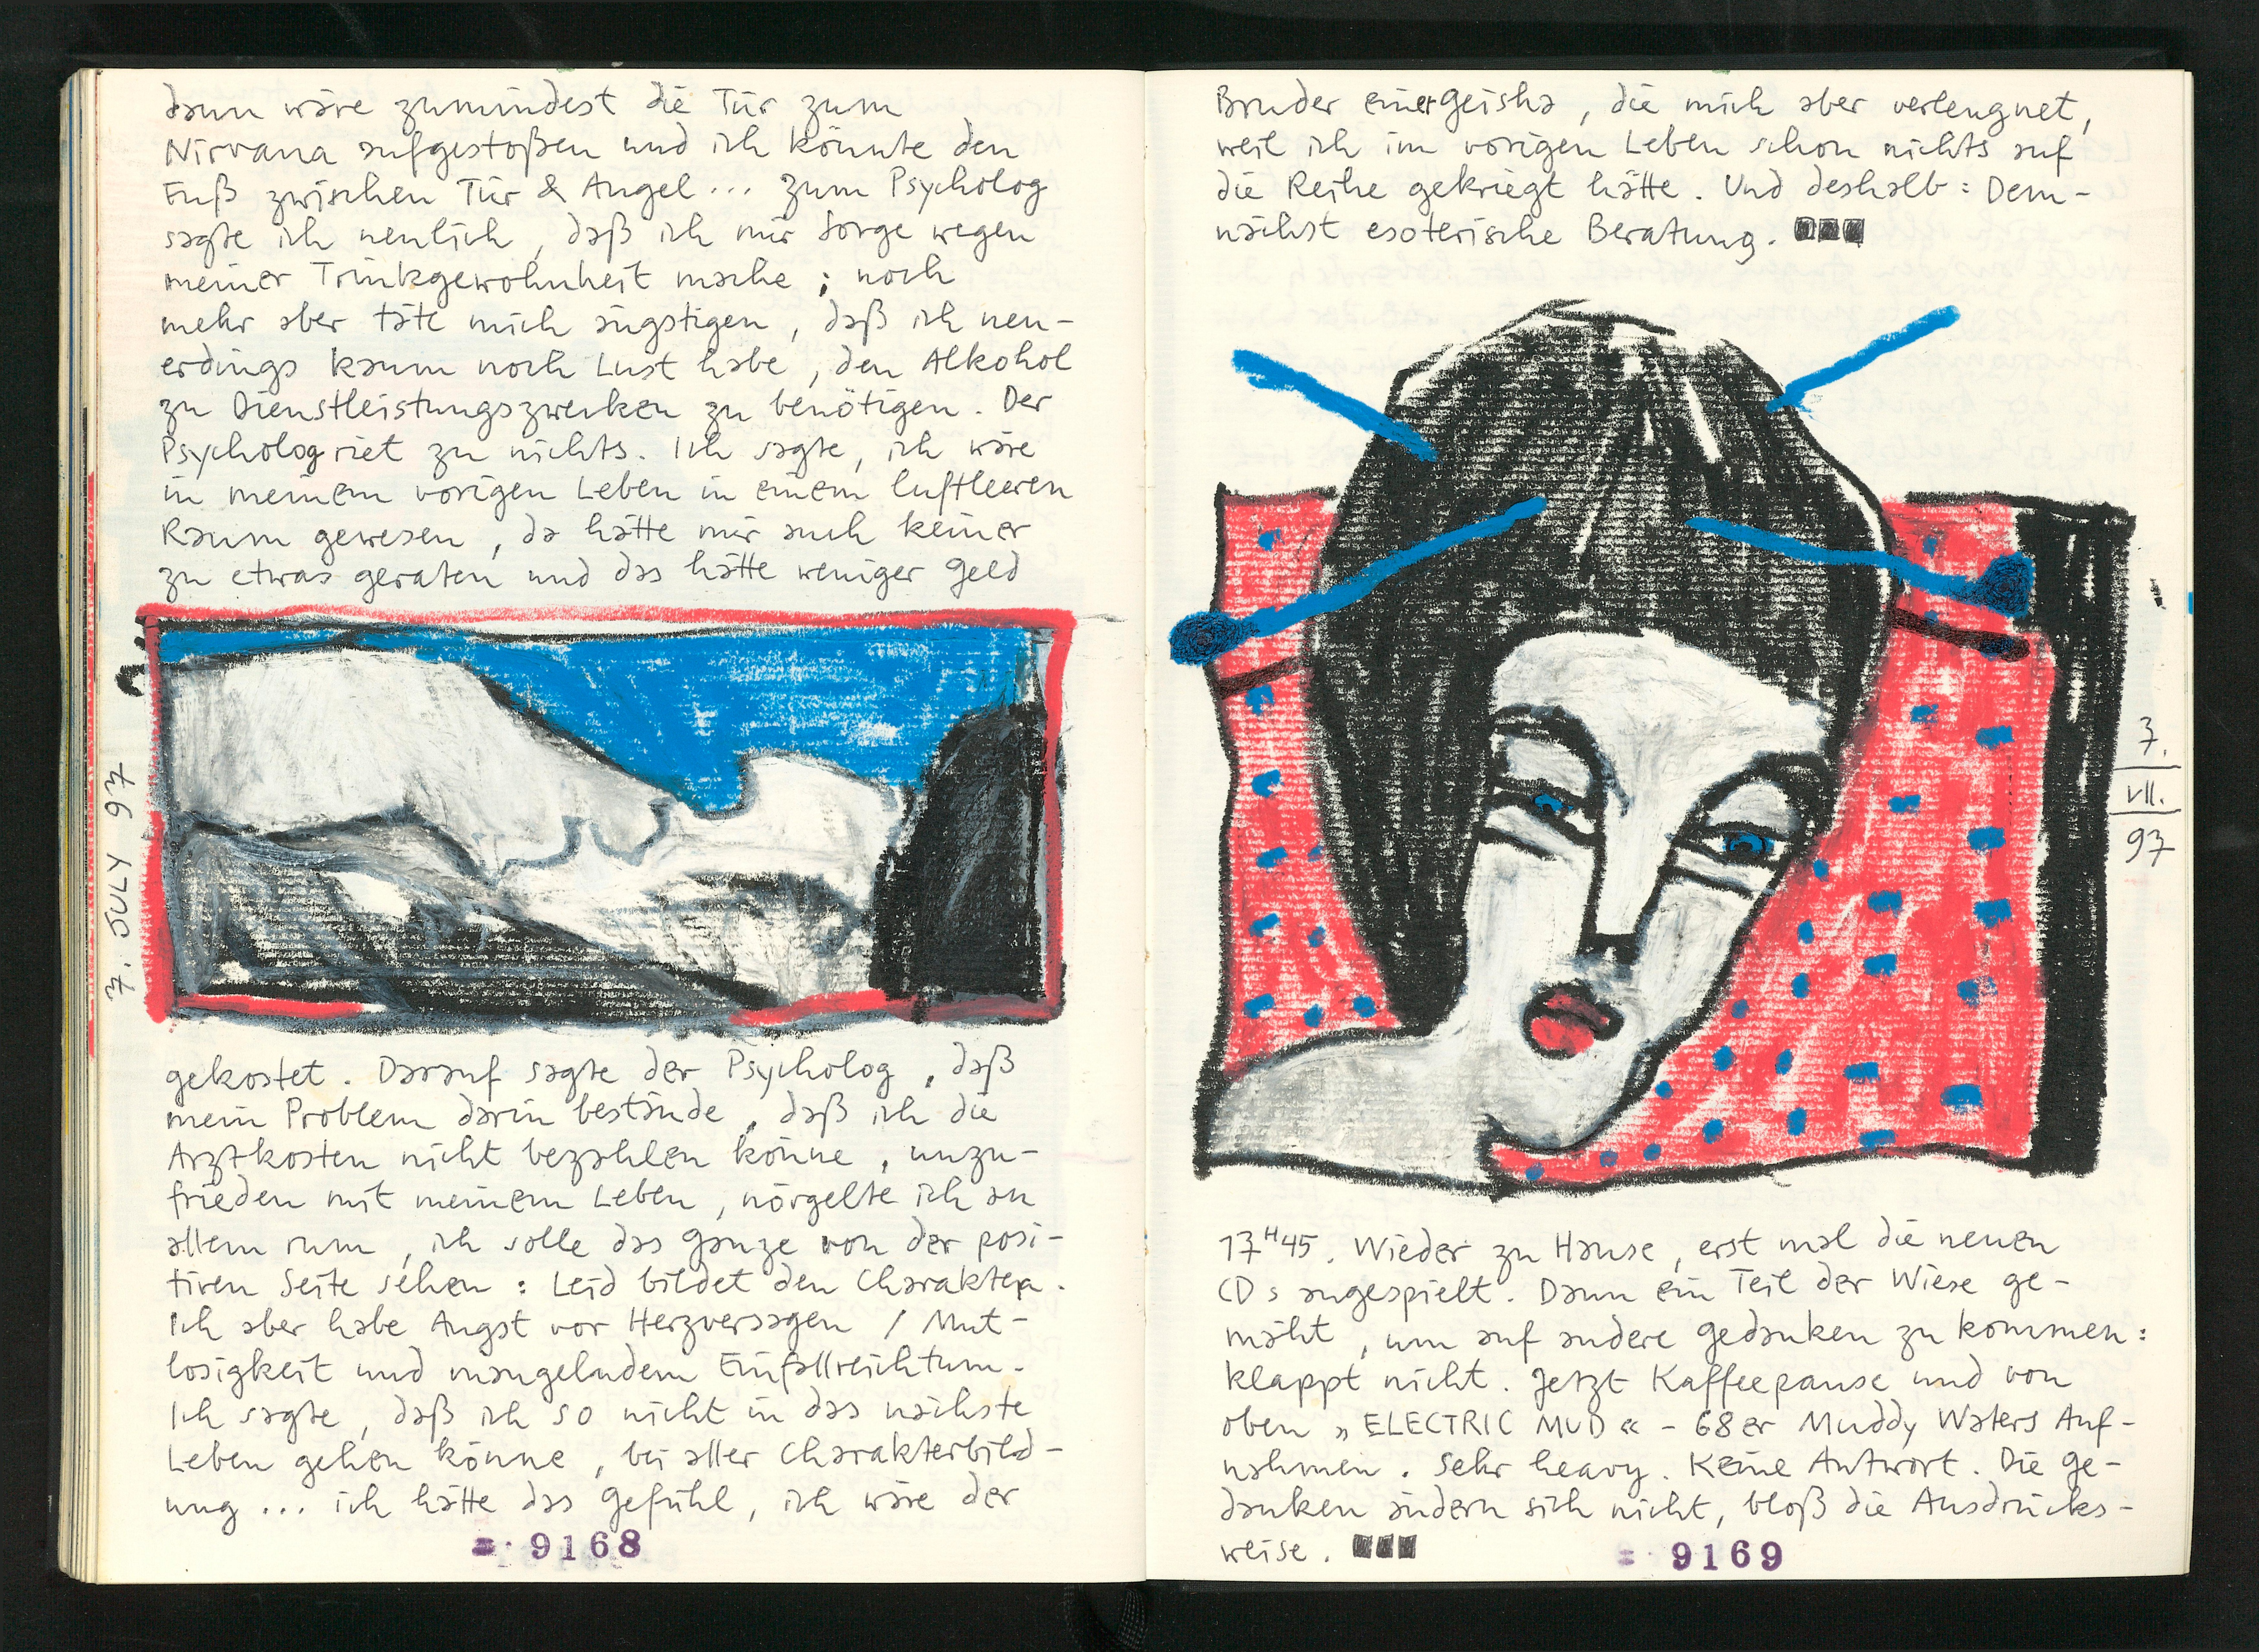 dann wäre zumindest die Tür zum
Nirvana aufgestoßen und ich könnte den
Fuß zwischen Tür & Angel ... zum Psycholog
sagte ich neulich, daß ich mir Sorge wegen
meiner Trinkgewohnheit mache; noch
mehr aber täte mich ängstigen, daß ich neu-
erdings kaum noch Lust habe, den Alkohol
zu Dienstleistungszwecken zu benötigen. Der
Psycholog riet zu nichts. Ich sagte, ich wäre
in meinem vorigen Leben in einem luftleeren
Raum gewesen, da hätte mir auch keiner
zu etwas geraten und das hätte weniger Geld
7. JULY 97
gekostet. Darauf sagte der Psycholog, daß
mein Problem darin bestände, daß ich die
Arztkosten nicht bezahlen könne, unzu-
frieden mit meinem Leben, nörgelte ich an
allem rum, ich solle das Ganze von der posi-
tiven Seite sehen: Leid bildet den Charakter.
Ich aber habe Angst vor Herzversagen / Mut-
losigkeit und mangelndem Einfallreichtum.
Ich sagte, daß ich so nicht in das nächste
Leben gehen könne, bei aller Charakterbild-
ung ... ich hätte das Gefühl, ich wäre der
9168
Bruder einer Geisha, die mich aber verleugnet,
weil ich im vorigen Leben schon nichts auf
die Reihe gekriegt hätte. Und deshalb: Dem-
nächst esoterische Beratung.
7.
VII.
97
17H45. Wieder zu Hause, erst mal die neuen
CDs angespielt. Dann ein Teil der Wiese ge-
mäht, um auf andere Gedanken zu kommen:
klappt nicht. Jetzt Kaffeepause und von
oben »ELECTRIC MUD« - 68er Muddy Waters Auf-
nahmen. Sehr heavy. Keine Antwort. Die Ge-
danken ändern sich nicht, bloß die Ausdrucks-
weise.
9169